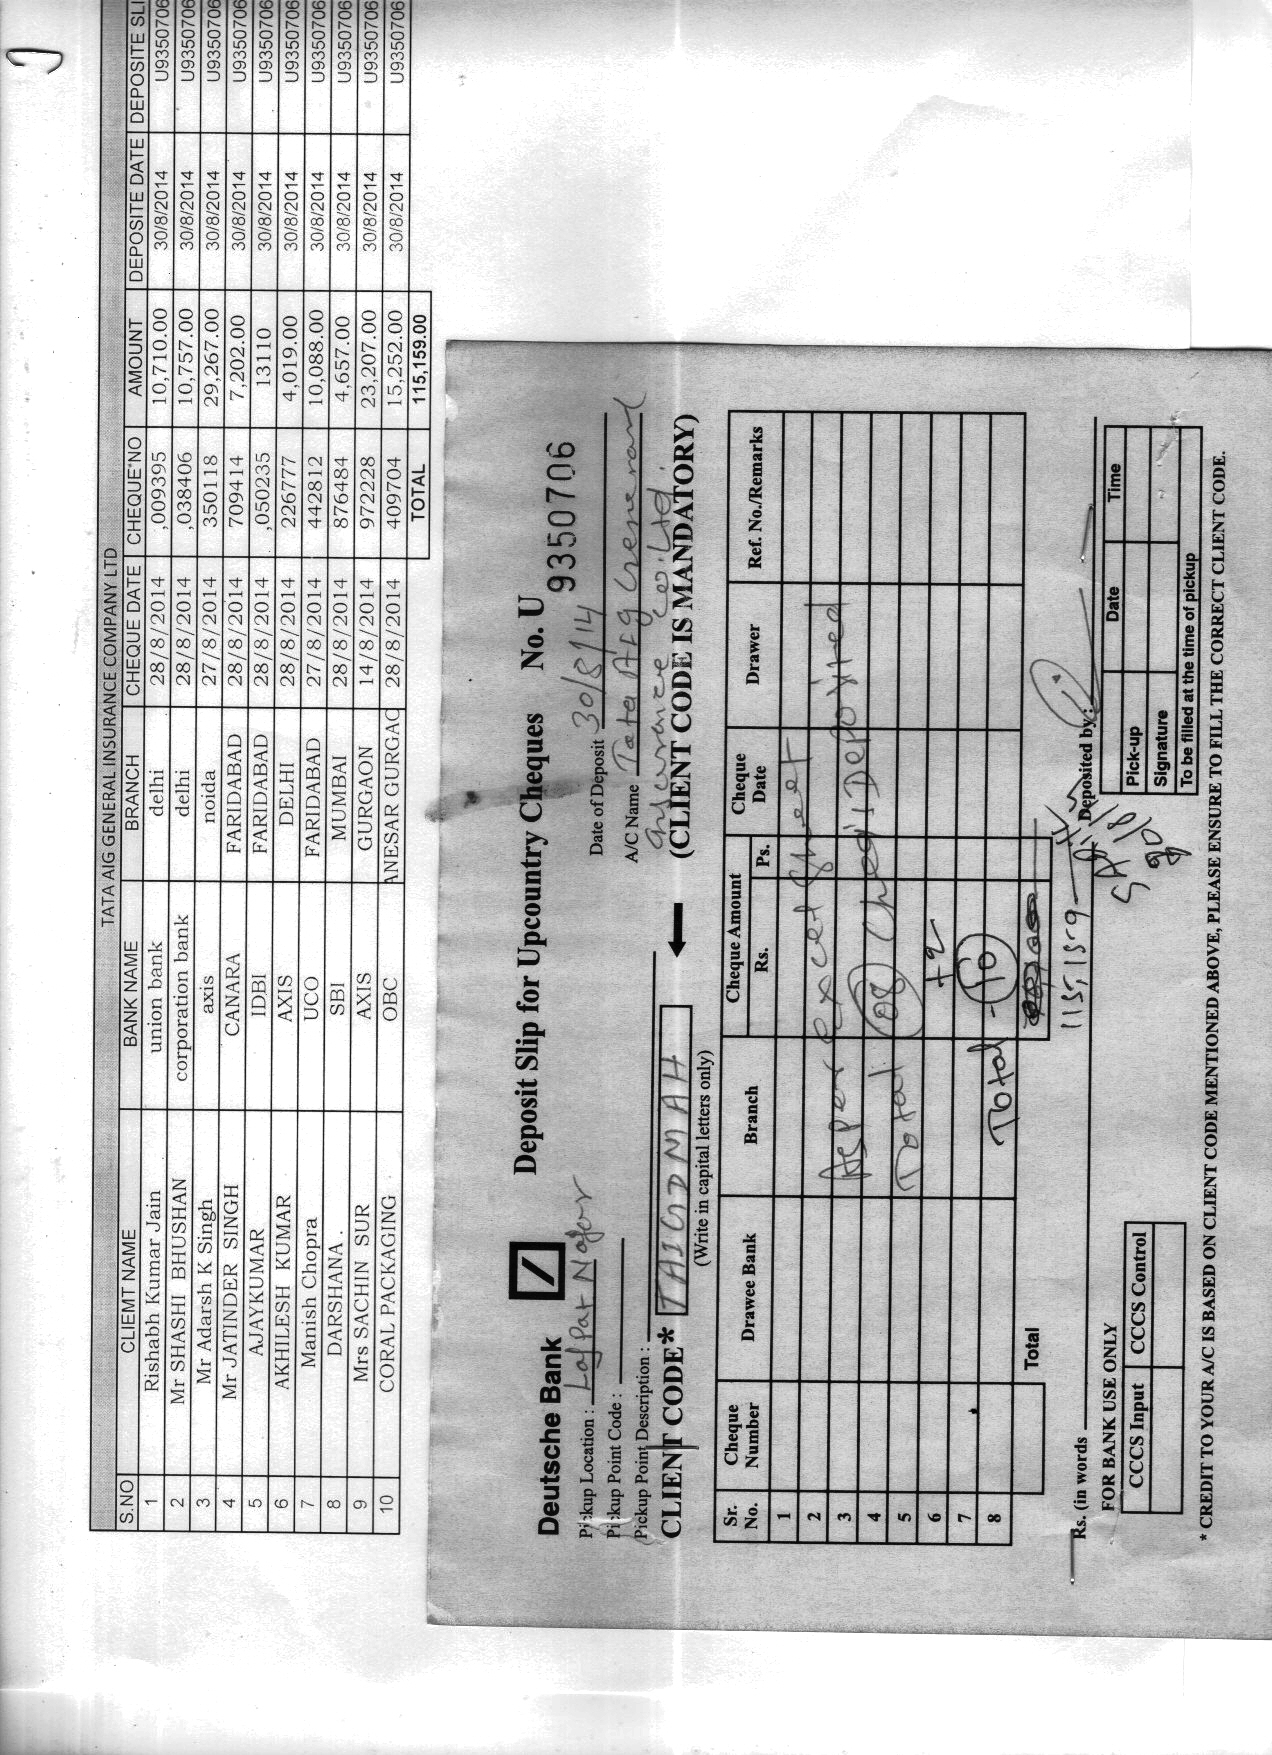 TATA AIG GENERAL INSURANCE COMPANY LTD
S.NO CLIEMT NAME BANK NAME BRANCH CHEQUE DATE CHEQUE'NO AMOUNT DEPOSITE DATE DEPOSITE SLI
1 Rishabh Kumar Jain union bank delhi 28/8/2014 ,009395 10,710.00 30/8/2014 U9350706
2 Mr SHASHI BHUSHAN corporation bank delhi 28/8/2014 ,038406 10,757.00 30/8/2014 U9350706
3 Mr Adarsh K Singh axis noida 27/8/2014 350118 29,267.00 30/8/2014 U9350706
4 Mr JATINDER SINGH CANARA FARIDABAD 28/8/2014 709414 7,202.00 30/8/2014 U9350706
5 AJAYKUMAR IDBI FARIDABAD 28/8/2014 ,050235 13110 30/8/2014 U9350706
6 AKHILESH KUMAR AXIS DELHI 28/8/2014 226777 4,019.00 30/8/2014 U9350706
7 Manish Chopra UCO FARIDABAD 27/8/2014 442812 10,088.00 30/8/2014 U9350706
8 DARSHANA . SBI MUMBAI 28/8/2014 876484 4,657.00 30/8/2014 U9350706
9 Mrs SACHIN SUR AXIS GURGAON 14/8/2014 972228 23,207.00 30/8/2014 U9350706
10 CORAL PACKAGING OBC ANESAR GURGAO 28/8/2014 409704 15,252.00 30/8/2014 U9350706
TOTAL 115,159.00
Deutsche Bank Deposit Slip for Upcountry Cheques No. U 9350706
Pickup Location : Lajpat Nagar Date of Deposit 30/8/14
Pickup Point Code : A/C Name Tata AIG General
Pickup Point Description : Insurance co. Ltd
CLIENT CODE* TAIGDMAH (CLIENT CODE IS MANDATORY)
(Write in capital letters only)
Sr. No. Cheque Number Drawee Bank Branch Cheque Amount Rs. Ps. Cheque Date Drawer Ref. No./Remarks
1
2
3 As per excel sheet
4
5 Total 08 Deposited
6 +2
7
8 Total - 10
Total
115,159
Rs. (in words Deposited by :
FOR BANK USE ONLY
CCCS Input CCCS Control
Pick-up Date Time
Signature
To be filled at the time of pickup
* CREDIT TO YOUR A/C IS BASED ON CLIENT CODE MENTIONED ABOVE, PLEASE ENSURE TO FILL THE CORRECT CLIENT CODE.